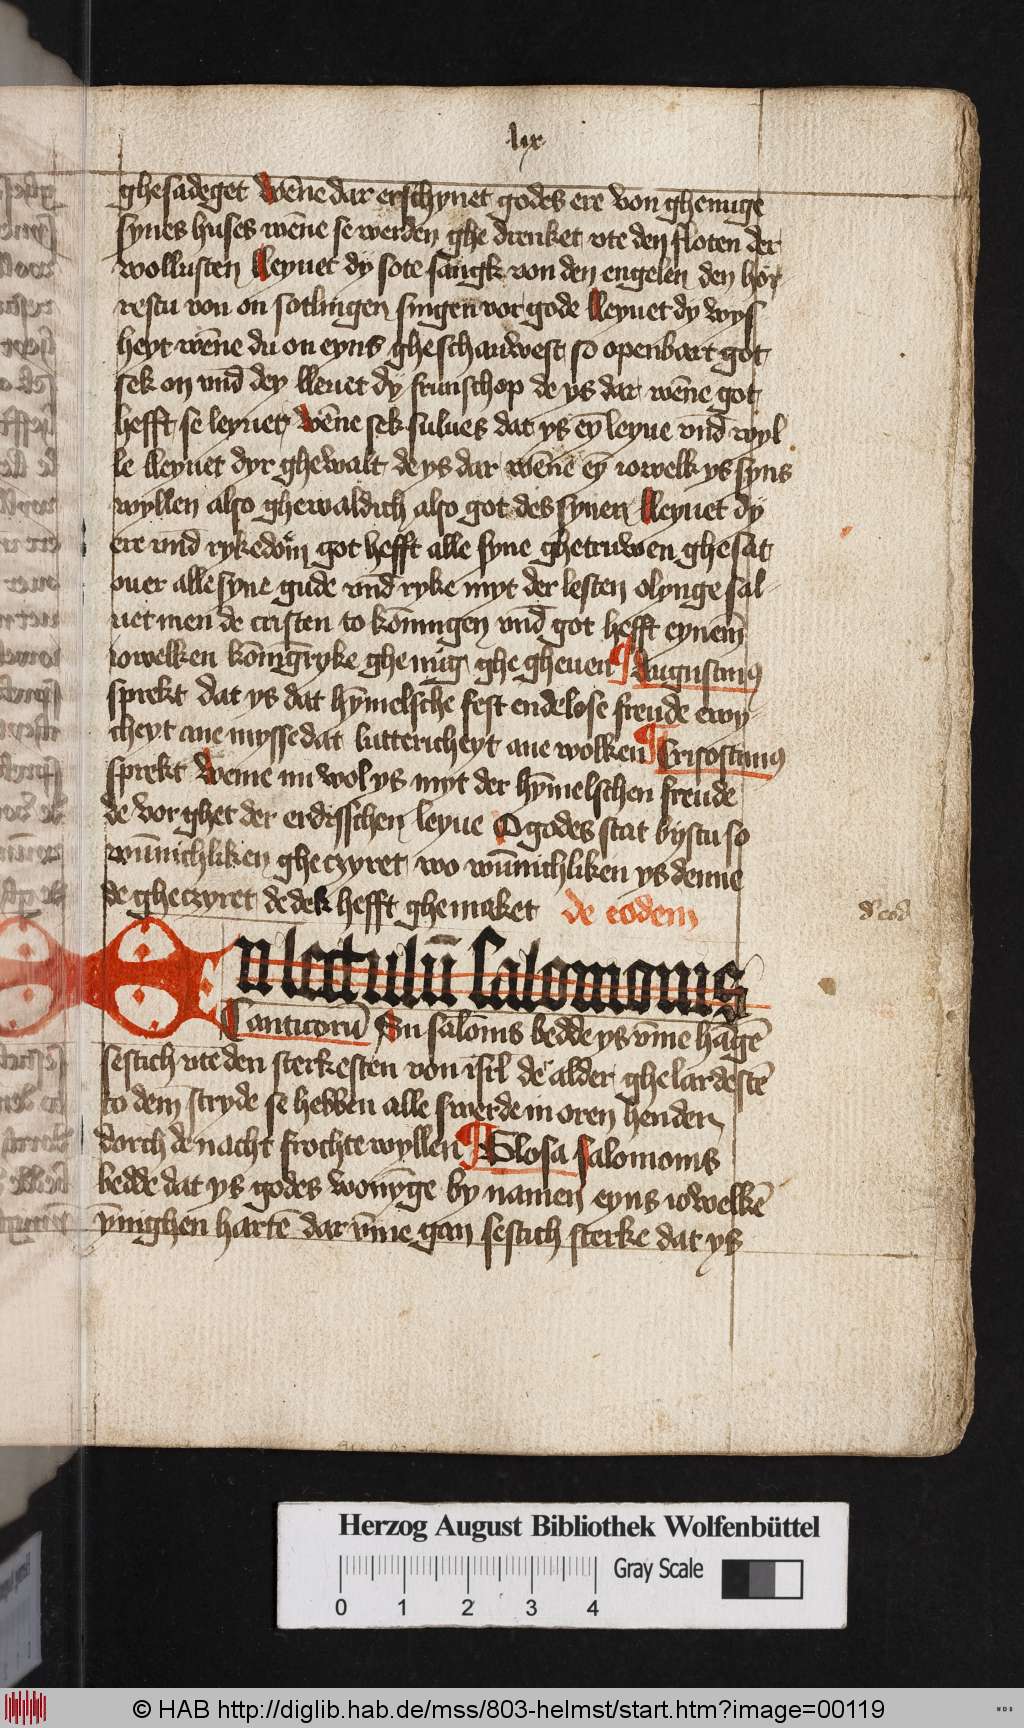 lix
ghesadeget wēne dar erschynet godes ere von ghenuge
synes huses wēne se werden ghe drenket vte den floten der
wollusten lleyuet dy sote sangk von den engelen den hor
restu von on sotlingen singen vor gode lleyuet dy wys
heyt wēne du on eyns gheschauwest so openbart got
sek on vnd dey lleuet dy frunschop de ys dar wēne got
hefft se leyuer wēne sek sulues dat ys eȳ leyue vnd wyl
le lleyuet dyr ghewalt de ys dar wēne eȳ iowelk ys syns
wyllen also ghewaldich also got des synen lleyuet dy
ere vnd rykedom got hefft alle syne ghetruwen ghesat
ouer alle syne gude vnd ryke myt der lesten olynge sal-
uet men de cristen to kōningen vnd got hefft eynem
iowelken kōnigryke ghenug ghe gheuen ¶ Augustinus
sprekt dat ys dat hȳmelsche fest endelose freude ewy-
cheyt ane myssedat luttericheyt ane wolken ¶ Crisostimus
sprekt weme nu wol ys myt der hȳmelschen freude
de vorghet der erdisschen leyue O godes stat bystu so
wūnichliken gheczyret wo wūnichliken ys denne
de gheczyret de dek hefft ghemaket de eodem
d' eod
In lectulū salomonis
Canticorū Sin salōnis bedde ys v̄me hāgē
sestich vte den sterkesten von isrl de alder ghelardestē
to dem stryde se hebben alle swerde in oren henden
dorch de nacht frochte wyllen ¶ Glosa salomonis
bedde dat ys godes wonȳge by namen eyns iowelkē
ȳnighen hartē dar v̄me gan sestich sterke dat ys
Herzog August Bibliothek Wolfenbüttel
Gray Scale
0 1 2 3 4
© HAB http://diglib.hab.de/mss/803-helmst/start.htm?image=00119